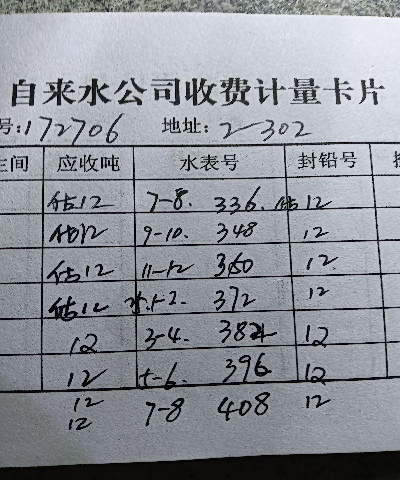 自来水公司收费计量卡片
号:172706 地址: 2-302
间 应收吨 水表号 封铅号
估12 7-8. 336. 估12
估12 9-10. 348 12
估12 11-12 360 12
估12 1-2. 372 12
12 3-4. 384 12
12 5-6. 396 12
12 7-8 408 12
12